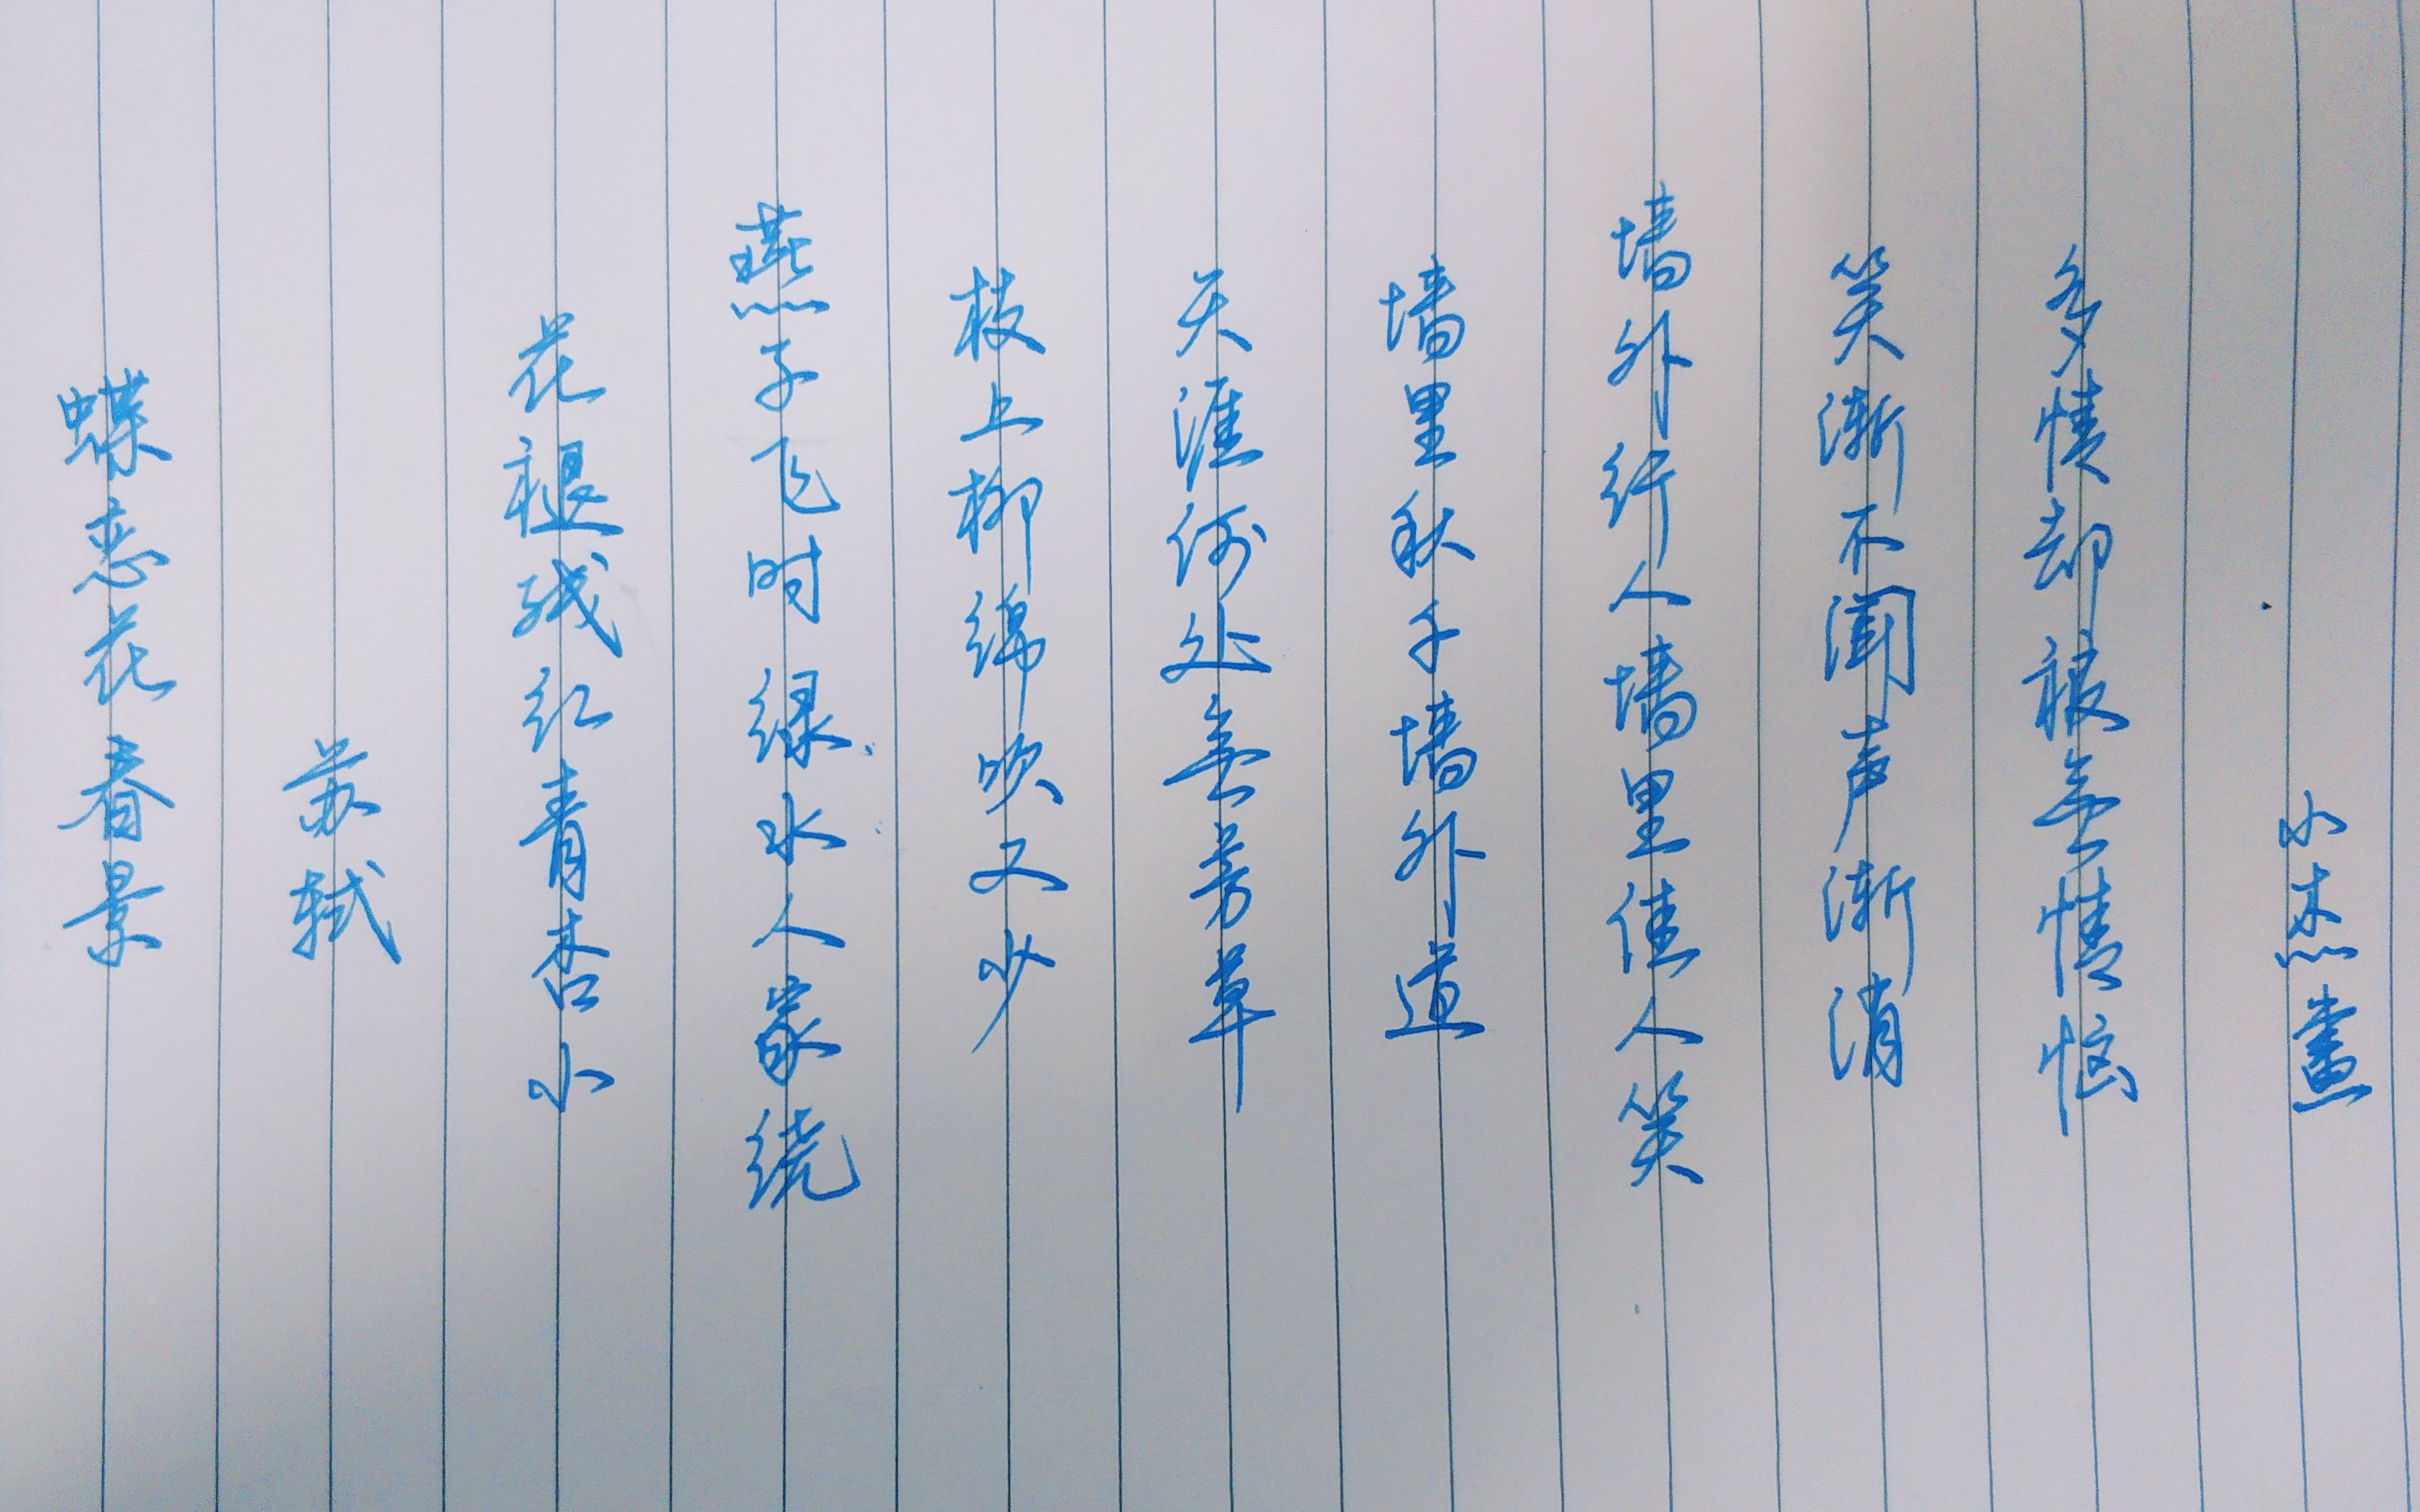 蝶恋花春景
苏轼
花褪残红青杏小
燕子飞时绿水人家绕
枝上柳绵吹又少
天涯何处无芳草
墙里秋千墙外道
墙外行人墙里佳人笑
笑渐不闻声渐消
多情却被无情恼
小杰書